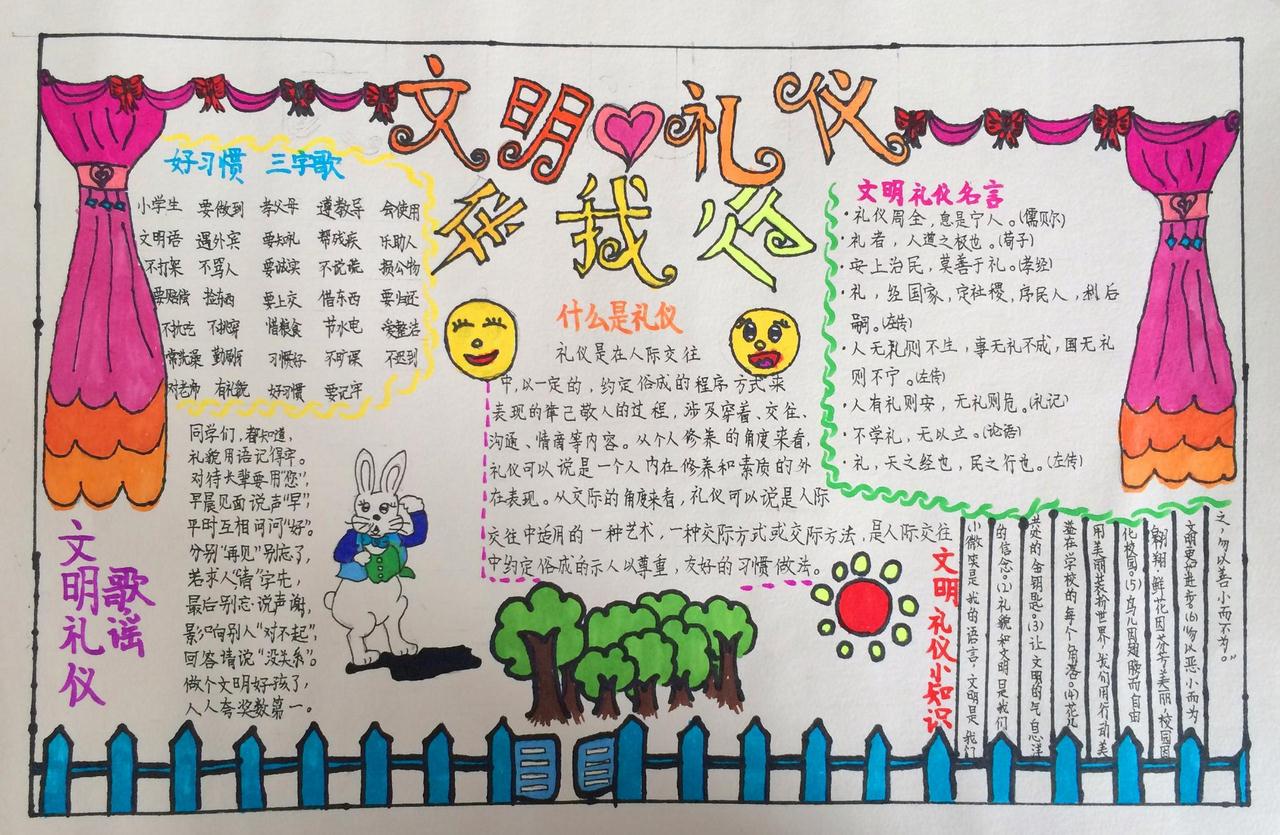 文明礼仪
在我心
好习惯 三字歌
小学生 要做到 孝父母 遵教导 会使用
文明语 遇外宾 要知礼 帮残疾 乐助人
不打架 不骂人 要诚实 不说谎 损公物
要赔偿 捡东西 要上交 借东西 要归还
不挑吃 不挑穿 惜粮食 节水电 爱整洁
常洗澡 勤刷牙 习惯好 不旷课 不迟到
对老师 有礼貌 好习惯 要记牢
文明礼仪
歌谣
同学们,都知道,
礼貌用语记得牢。
对待长辈要用“您”,
早晨见面说声“早”,
平时互相问问“好”。
分别“再见”别忘了,
若求人“请”字先,
最后别忘说声谢,
影响别人“对不起”,
回答请说“没关系”。
做个文明好孩子,
人人夸奖数第一。
什么是礼仪
礼仪是在人际交往
中,以一定的,约定俗成的程序方式来
表现的律己敬人的过程,涉及穿着、交往、
沟通、情商等内容。从个人修养的角度来看,
礼仪可以说是一个人内在修养和素质的外
在表现。从交际的角度来看,礼仪可以说是人际
交往中适用的一种艺术,一种交际方式或交际方法,是人际交往
中约定俗成的示人以尊重,友好的习惯做法。
文明礼仪名言
·礼仪周全,息是宁人。(儒贝尔)
·礼者,人道之极也。(荀子)
·安上治民,莫善于礼。(孝经)
·礼,经国家,定社稷,序民人,利后
嗣。(左传)
·人无礼则不生,事无礼不成,国无礼
则不宁。(左传)
·人有礼则安,无礼则危。(礼记)
·不学礼,无以立。(论语)
·礼,天之经也,民之行也。(左传)
文明礼仪小知识
小微笑是我的语言,文明是我们
的信念。(2)礼貌和文明是我们
共处的金钥匙。(3)让文明的气息洋
溢在学校的每个角落。(4)花儿
用美丽装扮世界,我们用行动美
化校园。(5)鸟儿因翅膀而自由
翱翔,鲜花因芬芳美丽,校园因
文明更加进步。(6)“勿以恶小而为
之,勿以善小而不为。”